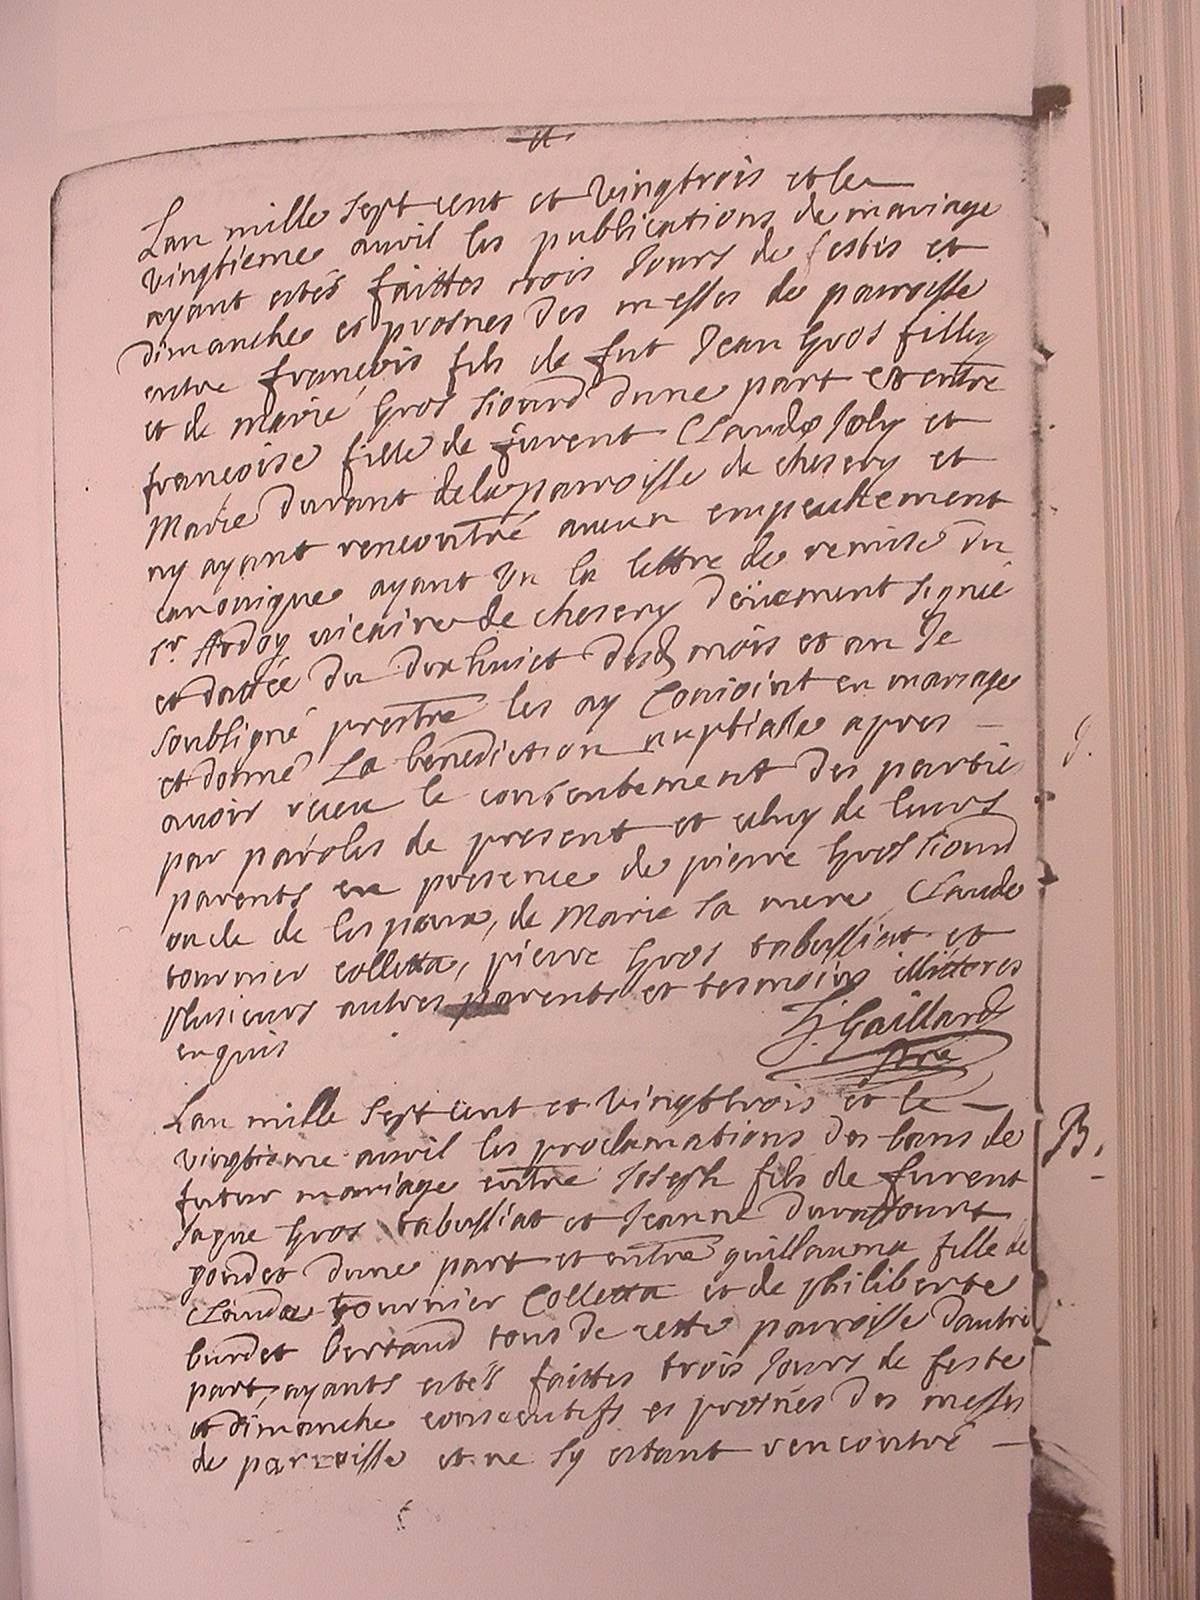 Lan mille sept cent et vingtrois et le
vingtieme avril les publications de mariage
ayant estés faittes trois Jours de festes et
dimanche es prosnes des messes de paroisse
entre françois fils de fut Jean Gros filley
et de marie Gros Siourd dune part et entre
françoise fille de furent Claude Joly et
Marie durant dela parroisse de chesery et
ny ayant rencontré aucun empechtement
canonique ayant vu la lettre de remise du
sr Ardoy vicaire de chesery deüement signée
et dattée du dix huict desd mois et an Je
soubsigné prestre les ay Conioint en mariage
et donné La benediction nuptiale apres
avoir receu le consentement des parties
par paroles de present et celuy de leurs
parents en presence de pierre Gros Siourd
oncle de lespoux, de Marie sa mere Claude
tournier colletta, pierre Gros tabussiat et
plusieurs autres parents et tesmoins illitteres
enquis
J. Gaillard
ptre
Lan mille sept cent et vingttrois et le
vingtieme avril les proclamations des bans de
futur mariage entre Joseph fils de furent
Jaque Gros tabussiat et Jeanne
goudet dune part et entre guillauma fille de
Clauda tournier Colletta et de philiberte
burdet bertaud tous de cette paroisse dautre
part, ayants estés faittes trois Jours de feste
et dimanche consecutifs es prosnes des messes
de parroisse et ne sy estant rencontré
B.